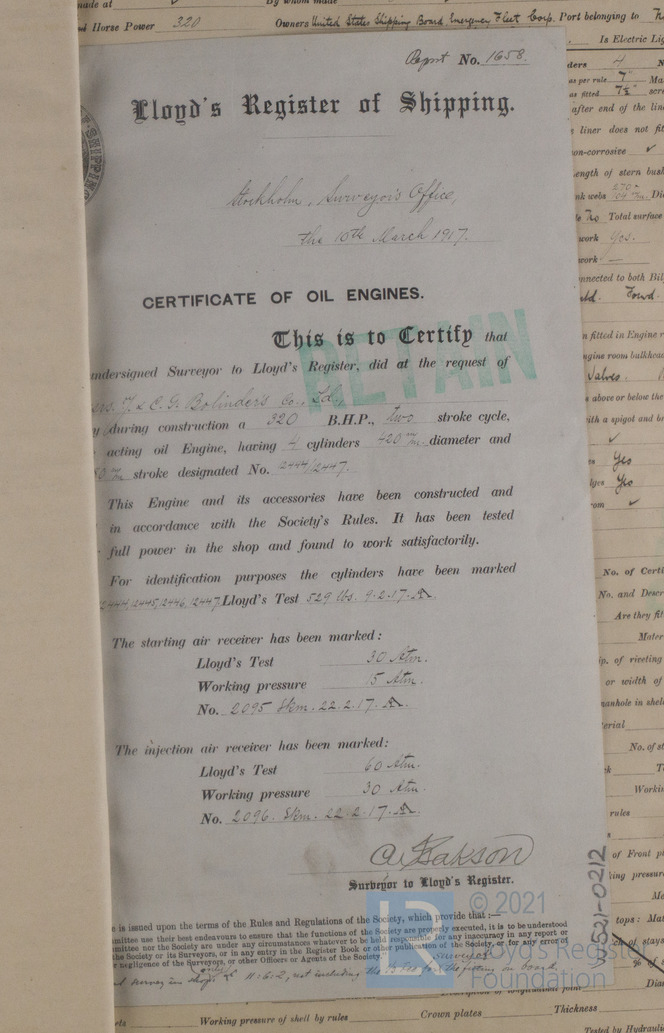 nade at
By whom made
d Horse Power 320 Owners United States Shipping Board Emergency Fleet Corp. Port belonging to
Is Electric Lig
Report No. 1658.
Lloyd's Register of Shipping.
Stockholm, Surveyor's Office,
the 10th March 1917.
CERTIFICATE OF OIL ENGINES.
RETAIN
This is to Certify that
undersigned Surveyor to Lloyd's Register, did at the request of
J. & C. G. Bolinder's Co., Ld.,
during construction a 320 B.H.P., two stroke cycle,
acting oil Engine, having 4 cylinders 420 m/m diameter and
m/m stroke designated No. 2444/2447.
This Engine and its accessories have been constructed and
in accordance with the Society's Rules. It has been tested
full power in the shop and found to work satisfactorily.
For identification purposes the cylinders have been marked
2444, 2445, 2446, 2447. Lloyd's Test 529 lbs. 9.2.17.
The starting air receiver has been marked:
Lloyd's Test 30 Atm.
Working pressure 15 Atm.
No. 2095 Skm. 22.2.17.
The injection air receiver has been marked:
Lloyd's Test 60 Atm.
Working pressure 30 Atm.
No. 2096. Skm. 22.2.17.
Surveyor to Lloyd's Register.
e is issued upon the terms of the Rules and Regulations of the Society, which provide that:—
mmittee use their best endeavours to ensure that the functions of the Society are properly executed, it is to be understood
mittee nor the Society are under any circumstances whatever to be held responsible for any inaccuracy in any report or
the Society or its Surveyors, or in any entry in the Register Book or other publication of the Society, or for any error of
r negligence of the Surveyors, or other Officers or Agents of the Society.
only
11:6:2, not including the fee for the fitting on board
Working pressure of shell by rules
Crown plates
Thickness
Tested by Hydraulic
ders 4
as per rule 7"
as fitted 7½"
after end of the line
liner does not fit
on-corrosive
ength of stern bush
Total surface
work Yes.
work —
nnected to both Bil
Fowd.
n fitted in Engine r
ngine room bulkhead
Valves.
above or below the
ith a spigot and be
Yes
Yes
No. of Certi
No. and Descr
Are they fit
Mater
ip. of riveting
or width of
manhole in shel
terial
No. of st
Workin
rules
of Front p
king pressur
tops: Mat
of stays
W521-0212
© 2021
Lloyd's Register
Foundation
LR